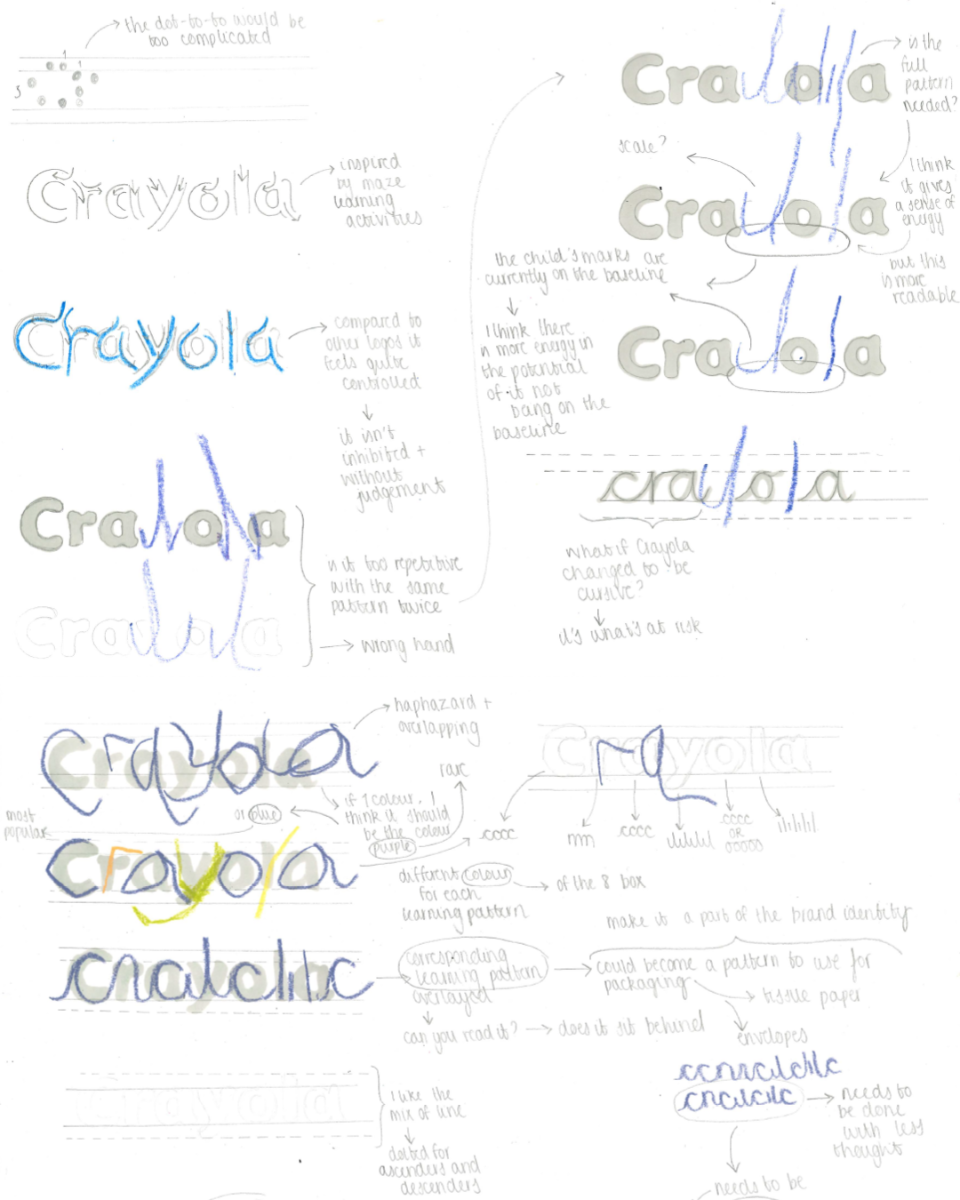 the dot-to-to would be
too complicated
1
1
3
Crayola
inspired
by maze
learning
activities
Crayola
compared to
other logos it
feels quite
controlled
it isn't
inhibited +
without
judgement
Cra
o
a
Cra
o
a
is it too repetitive
with the same
pattern twice
wrong hand
Cra
o
a
is the
full
pattern
needed?
scale?
I think
it gives
a sense of
energy
Cra
o
a
but this
is more
readable
the child's marks are
currently on the baseline
I think there
is more energy in
the potential
of it not
being on the
baseline
Cra
o
a
cra
o
a
what if Crayola
changed to be
cursive?
it's what's at risk
Crayola
haphazard +
overlapping
if 1 colour, I
think it should
be the colour
purple
or blue
most
popular
Crayola
rarc
cccc
Crayola
mm
cccc
cccc
OR
ooooo
different colour
for each
learning pattern
of the 8 box
Crayola
corresponding
learning pattern
overlayed
can you read it?
does it sit behind
make it a part of the brand identity
could become a pattern to use for
packaging
tissue paper
envelopes
needs to
be done
with less
thought
needs to be
Crayola
I like the
mix of line
dotted for
ascenders and
descenders